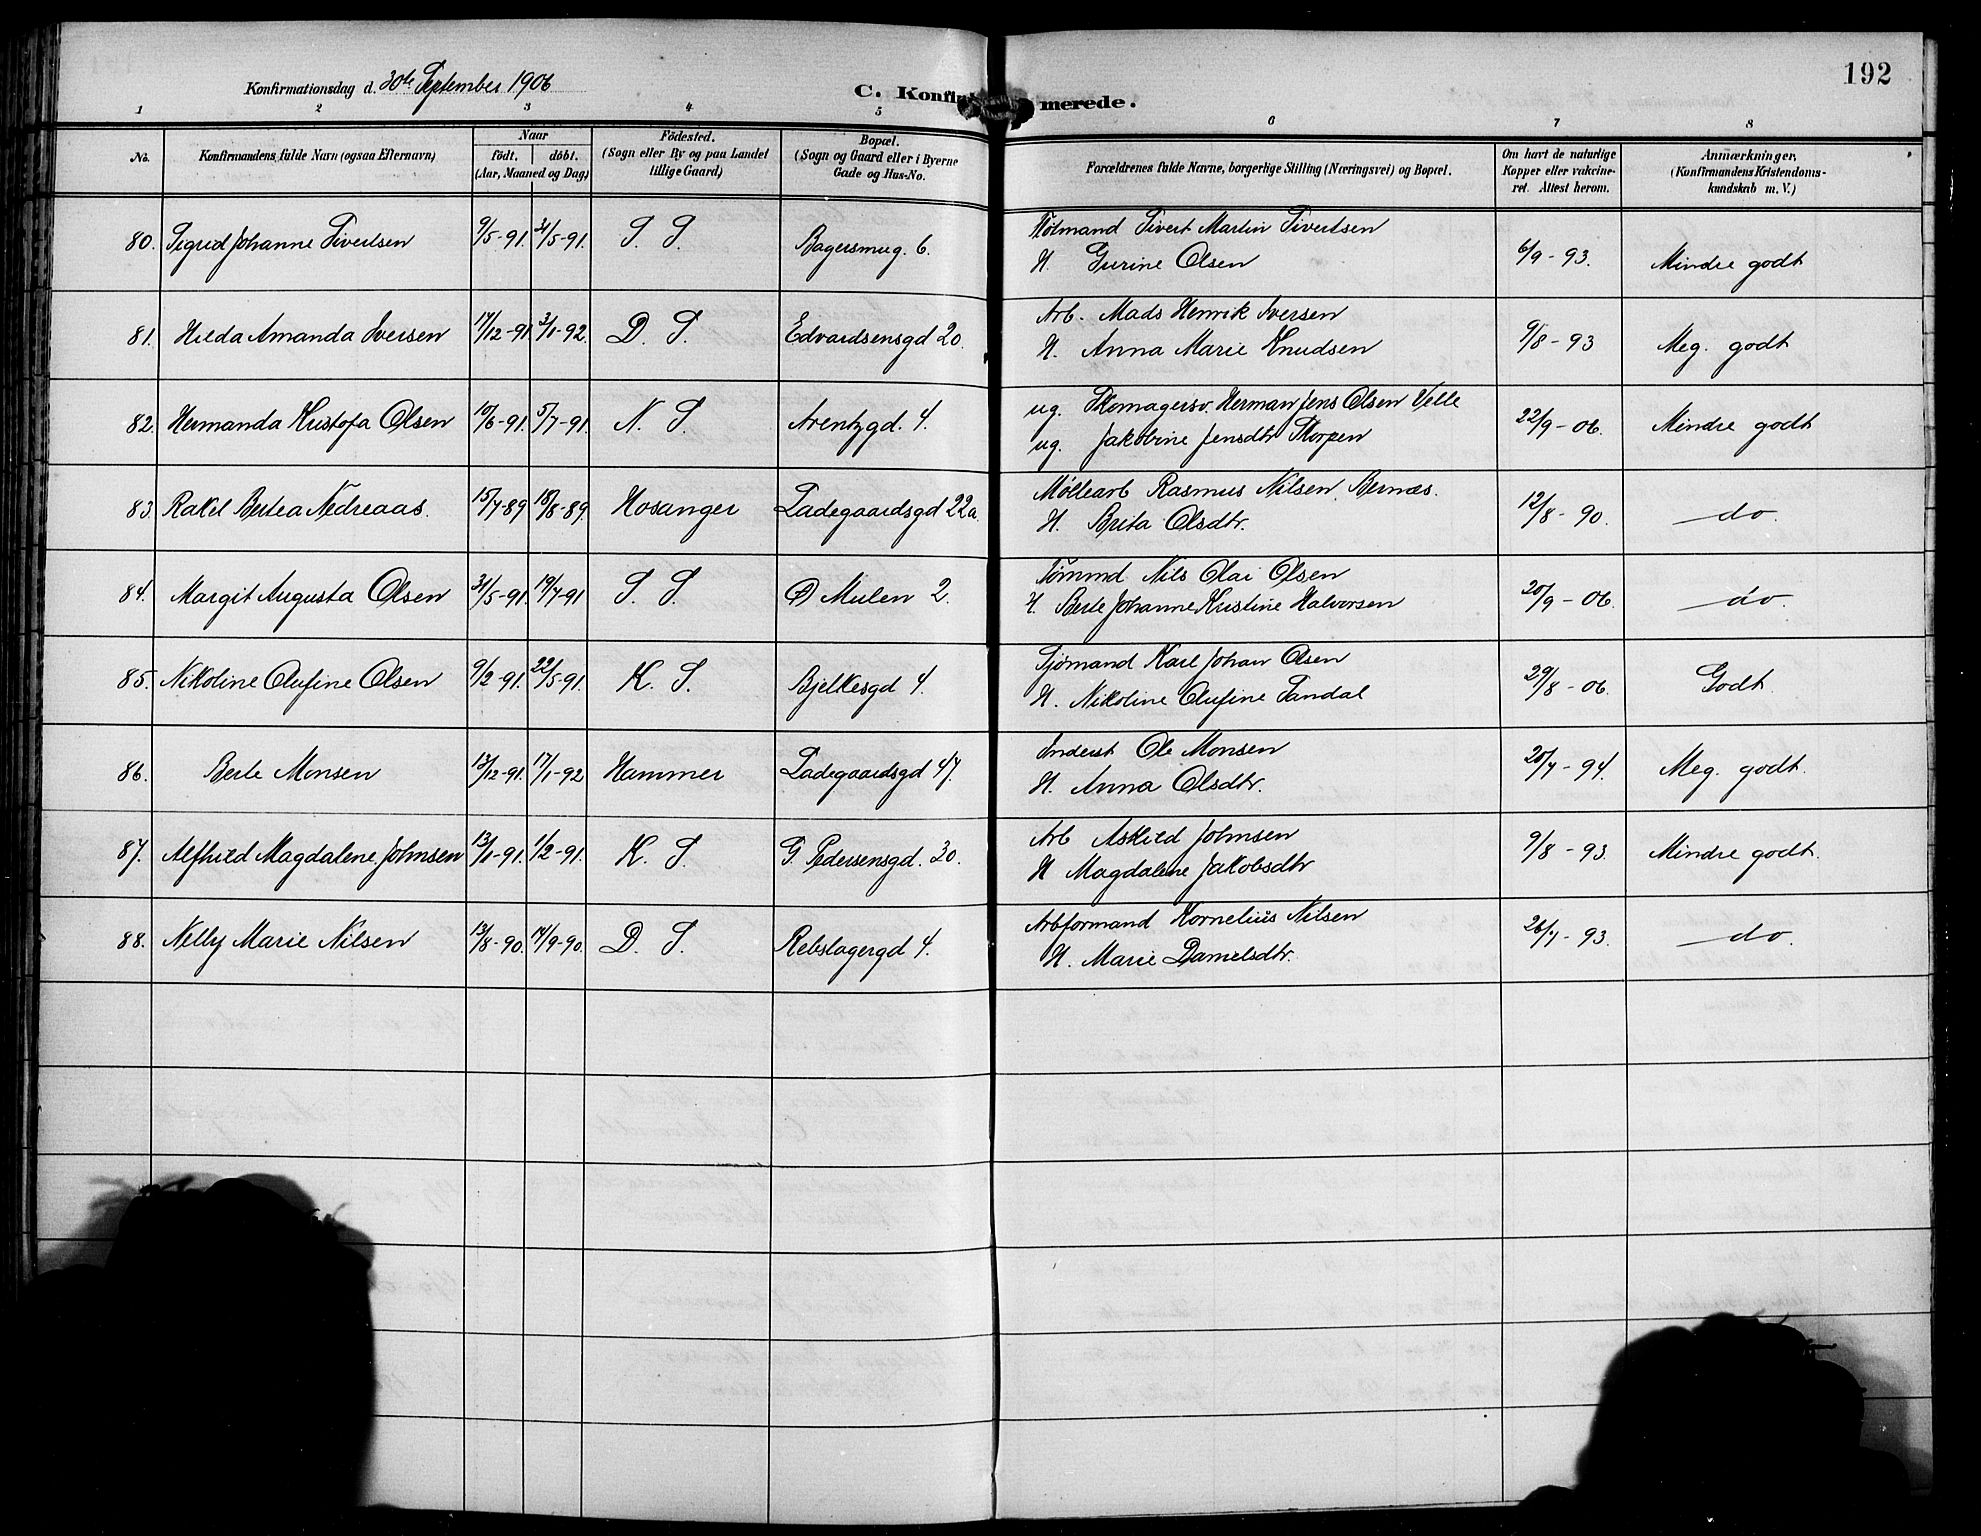 192
Konfirmationsdag d. 30te September 1906
C. Konfirmerede.
1 2 3 4 5 6 7 8
No. Konfirmandens fulde Navn (ogsaa Efternavn) Naar født. døbt. (Aar, Maaned og Dag) Fødested. (Sogn eller By og paa Landet tillige Gaard) Bopæl. (Sogn og Gaard eller i Byerne Gade og Hus-No. Forældrenes fulde Navne, borgerlige Stilling (Næringsvei) og Bopæl. Om havt de naturlige Kopper eller vakcineret. Attest herom. Anmærkninger. (Konfirmandens Kristendomskundskab m. V.)
80. Sigrid Johanne Sivertsen 9/5-91. 31/5-91. S. S. Bagersmug. 6. Sivert Martin Sivertsen
H. Gurine Olsen 6/9-93. Mindre godt
81. Hilda Amanda Iversen 17/12-91. 3/1-92. D. S. Edvardsensgd 20. Arb. Mads Henrik Iversen
H. Anna Marie Knudsen 9/8-93 Meg. godt
82. Hermanda Kristofa Olsen 10/6-91. 5/7-91. N. S. Arentzgd. 4. ug. Skomagersv. Herman Jens Olsen Velle
ug. Jakobine Jensdtr Skorpen 22/9-06. Mindre godt
83. Rakel Bertea Nedreaas. 15/7-89 18/8-89. Hosanger Ladegaardsgd 22a. Møllearb Rasmus Nilsen Bernæs.
H. Brita Olsdtr. 12/8-90. do.
84. Margit Augusta Olsen 31/5-91. 19/7-91 S. S. Ø Mulen 2. Tømmd Nils Olai Olsen
H. Berte Johanne Kristine Halvorsen 20/9-06. do.
85. Nikoline Olufine Olsen 9/2-91. 22/5-91. K. S. Bjelkesgd 4. Sjømand Karl Johan Olsen
H. Nikoline Olufine Sandal 29/8-06. Godt.
86. Berte Monsen 13/12-91. 17/1-92 Hammer Ladegaardsgd 47. Inderst Ole Monsen
H. Anna Olsdtr. 20/7-94. Meg. godt.
87. Alfhild Magdalene Johnsen 13/1-91. 1/2-91. K. S. G. Pedersensgd. 30. Arb Askild Johnsen
H Magdalene Jakobsdtr 9/8-93. Mindre godt.
88. Nelly Marie Nilsen 13/8-90. 14/9-90. D. S. Rebslagergd 4. Arbformand Kornelius Nilsen
H. Marie Danielsdtr. 26/7-93. do.